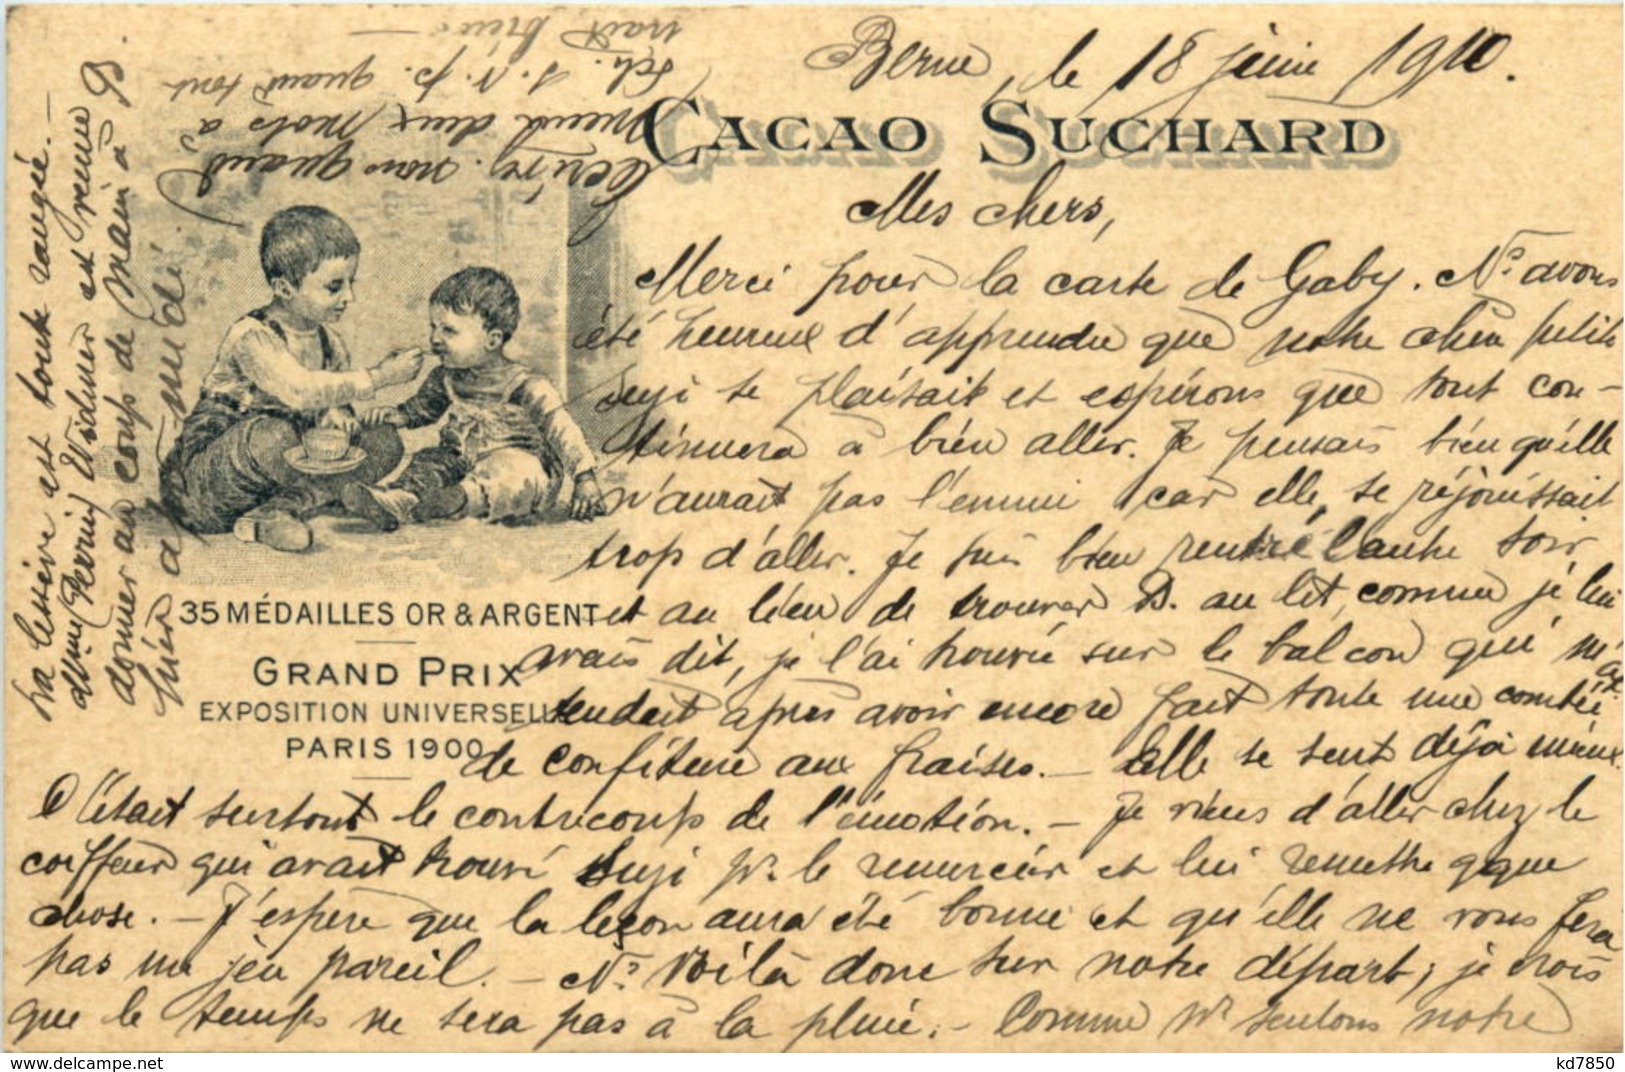 Berne, le 18 juin 1910.
CACAO SUCHARD
Mes chers,
Merci pour la carte de Gaby. Ns avons
été heureux d'apprendre que notre chère petite
Suzi se plaisait et espérons que tout con-
tinuera à bien aller. Je pensais bien qu'elle
n'aurait pas l'ennui car elle se réjouissait
trop d'aller. Je suis bien rentré l'autre soir
et au lieu de trouver B. au lit, comme je lui
avais dit, je l'ai trouvée sur le balcon qui m'at-
tendait après avoir encore fait toute une
de confiture aux fraises. - Elle se sent déjà mieux.
C'était surtout le contrecoup de l'émotion. - Je viens d'aller chez le
coiffeur qui avait trouvé Suzi pr. le remercier et lui remettre qque
chose. - J'espère que la leçon aura été bonne et qu'elle ne vous fera
pas un jeu pareil. - Ns voilà donc sur notre départ; je crois
que le temps ne sera pas à la pluie. - Comme ns sentons notre
35 MÉDAILLES OR & ARGENT
GRAND PRIX
EXPOSITION UNIVERSELLE
PARIS 1900
La lessive est toute rangée. -
Mme (Perrin) Widmer est venue
donner un coup de main à B.
hier après midi.
Ecrivez nous quand
deux mots à
s. v. p. quand tout
kd7850